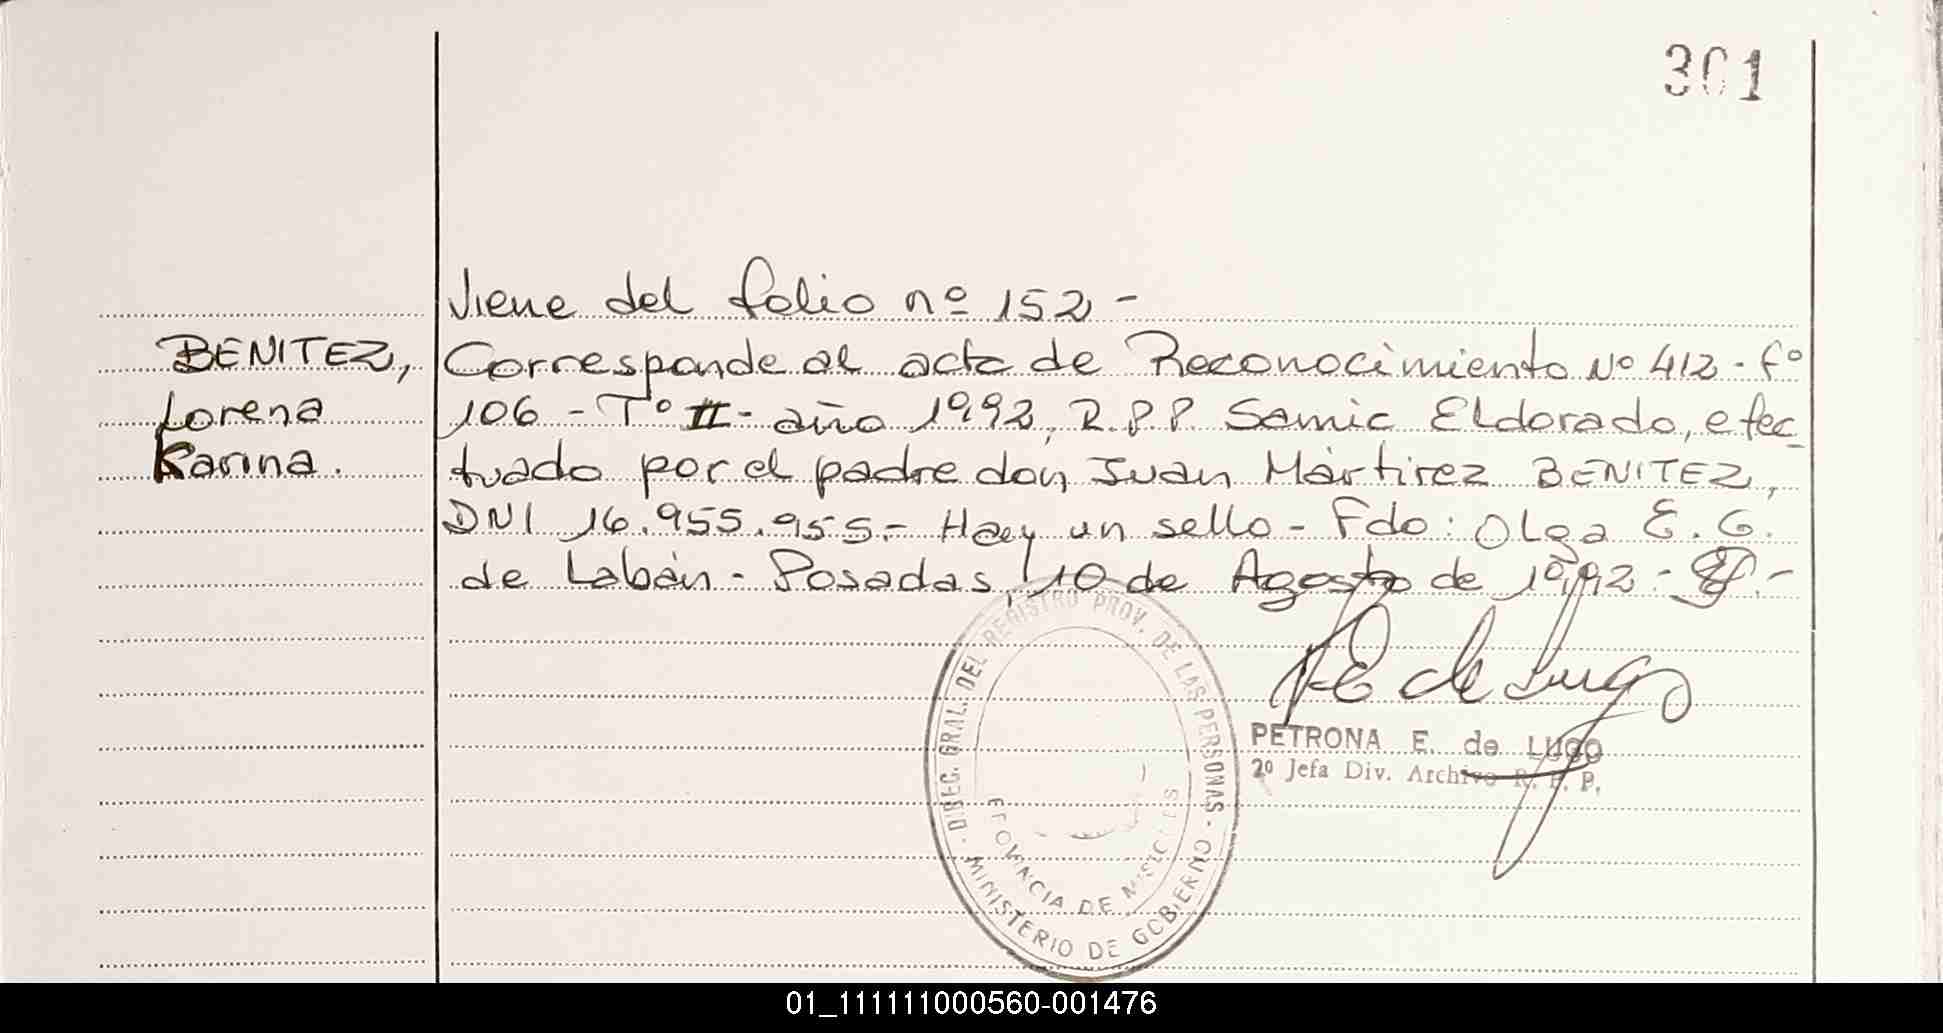 301
Viene del folio nº 152 -
BENITEZ,
Lorena
Karina.
Corresponde al acta de Reconocimiento Nº 412 - Fº
106 - Tº II - año 1992, R.P.P. Samic Eldorado, efec-
tuado por el padre don Juan Mártirez BENITEZ,
DNI 16.955.955.- Hay un sello - Fdo: Olga E. G.
de Labán - Posadas, 10 de Agosto de 1992 -
P E de Lugo
PETRONA E. de LUGO
2º Jefa Div. Archivo R. P. P.
DIREC. GRAL. DEL REGISTRO PROV. DE LAS PERSONAS -
MINISTERIO DE GOBIERNO
PROVINCIA DE MISIONES
01_111111000560-001476